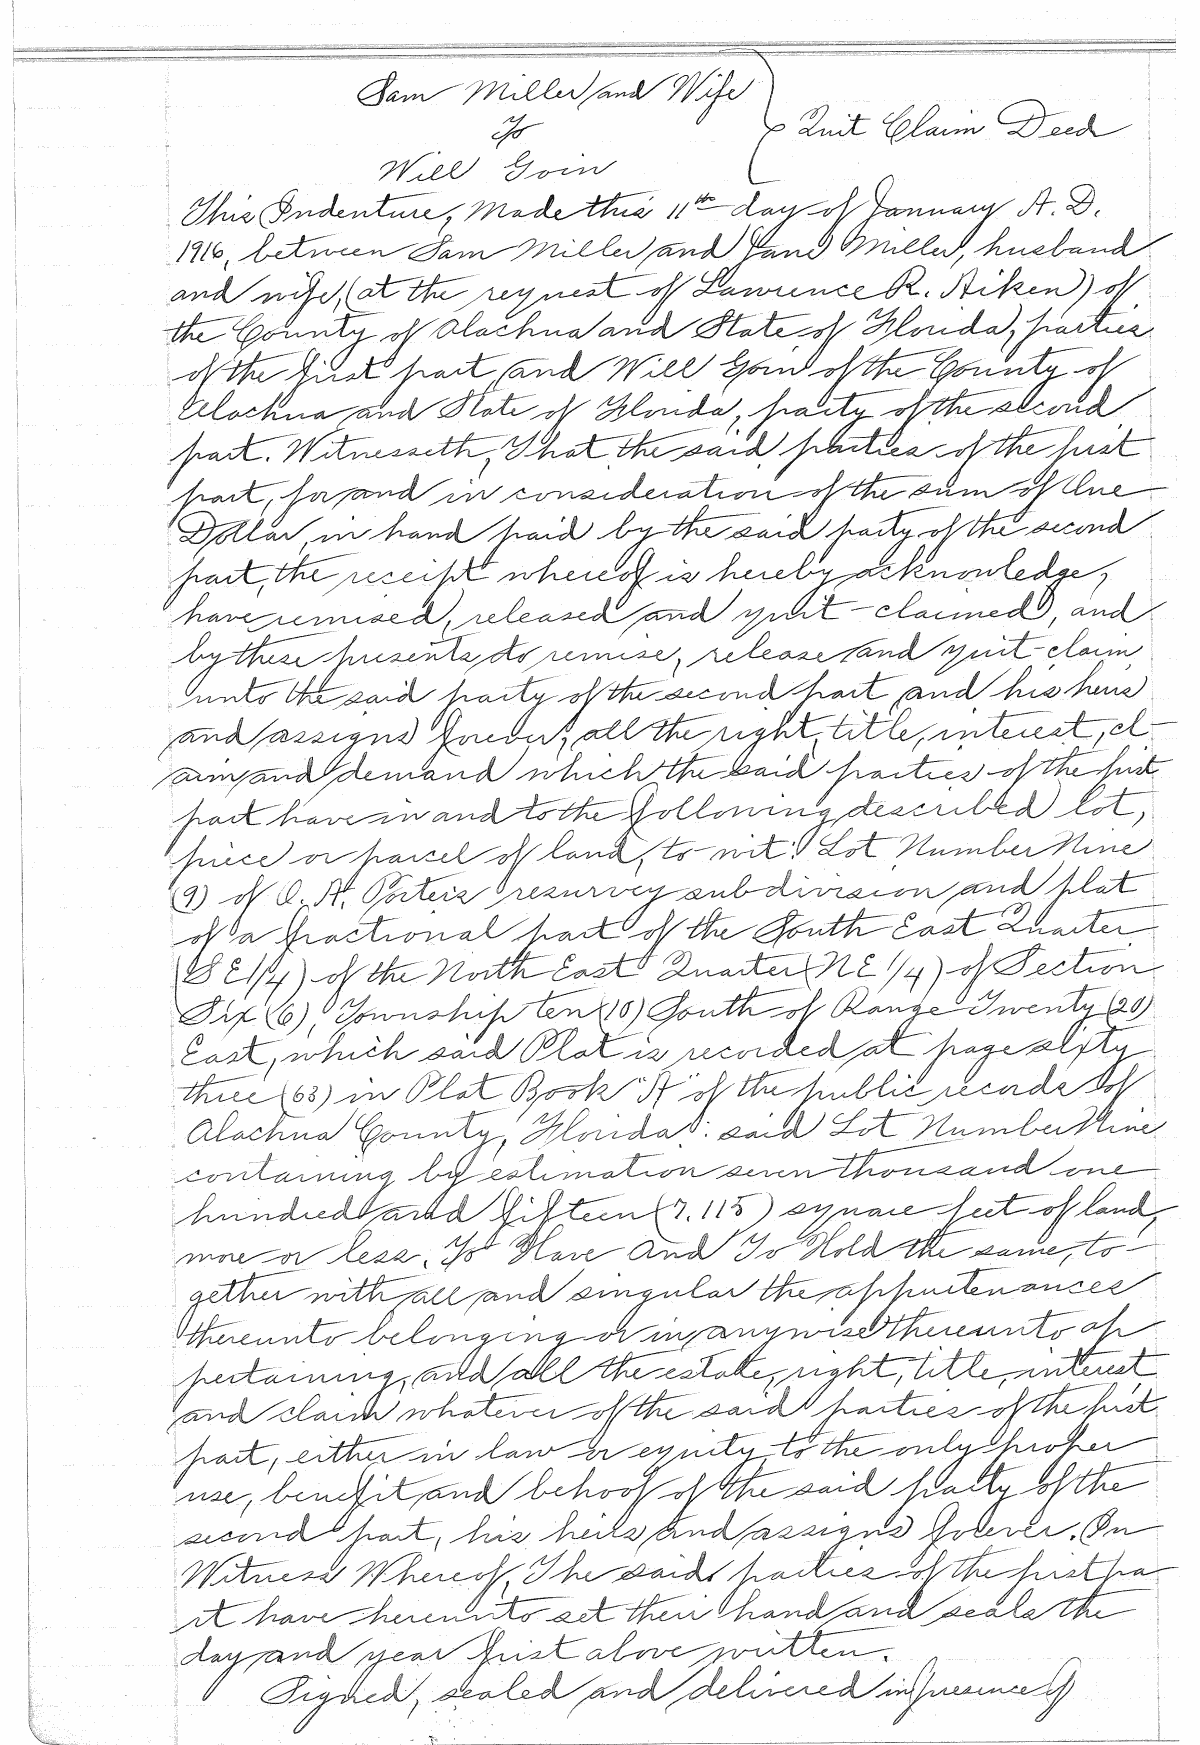 Sam Miller and Wife
To
Quit Claim Deed
Will Goin
This Indenture, Made this 11th day of January A. D.
1916, between Sam Miller and Jane Miller, husband
and wife, (at the request of Lawrence R. Aiken) of
the County of Alachua and State of Florida, parties
of the first part, and Will Goin of the County of
Alachua and State of Florida, party of the second
part. Witnesseth, That the said parties of the first
part, for and in consideration of the sum of One
Dollar, in hand paid by the said party of the second
part, the receipt whereof is hereby acknowledge,
have remised, released and quit-claimed, and
by these presents do remise, release and quit-claim
unto the said party of the second part and his heirs
and assigns forever, all the right, title, interest, cl-
aim and demand which the said parties of the first
part have in and to the following described lot,
piece or parcel of land, to wit: Lot Number Nine
(9) of O. A. Porters resurvey subdivision and plat
of a fractional part of the South East Quarter
(SE1/4) of the North East Quarter (NE 1/4) of Section
Six (6), Township ten (10) South of Range Twenty (20)
East, which said Plat is recorded at page sixty
three (63) in Plat Book "A" of the public records of
Alachua County, Florida: said Lot Number Nine
containing by estimation seven thousand one
hundred and fifteen (7.115) square feet of land,
more or less. To Have And To Hold the same, to-
gether with all and singular the appurtenances
thereunto belonging or in anywise thereunto ap
pertaining, and all the estate, right, title, interest
and claim whatever of the said parties of the first
part, either in law or equity, to the only proper
use, benefit and behoof of the said party of the
second part, his heirs and assigns forever. In
Witness Whereof, The said parties of the first pa
rt have hereunto set their hand and seals the
day and year first above written.
Signed, sealed and delivered in presence of